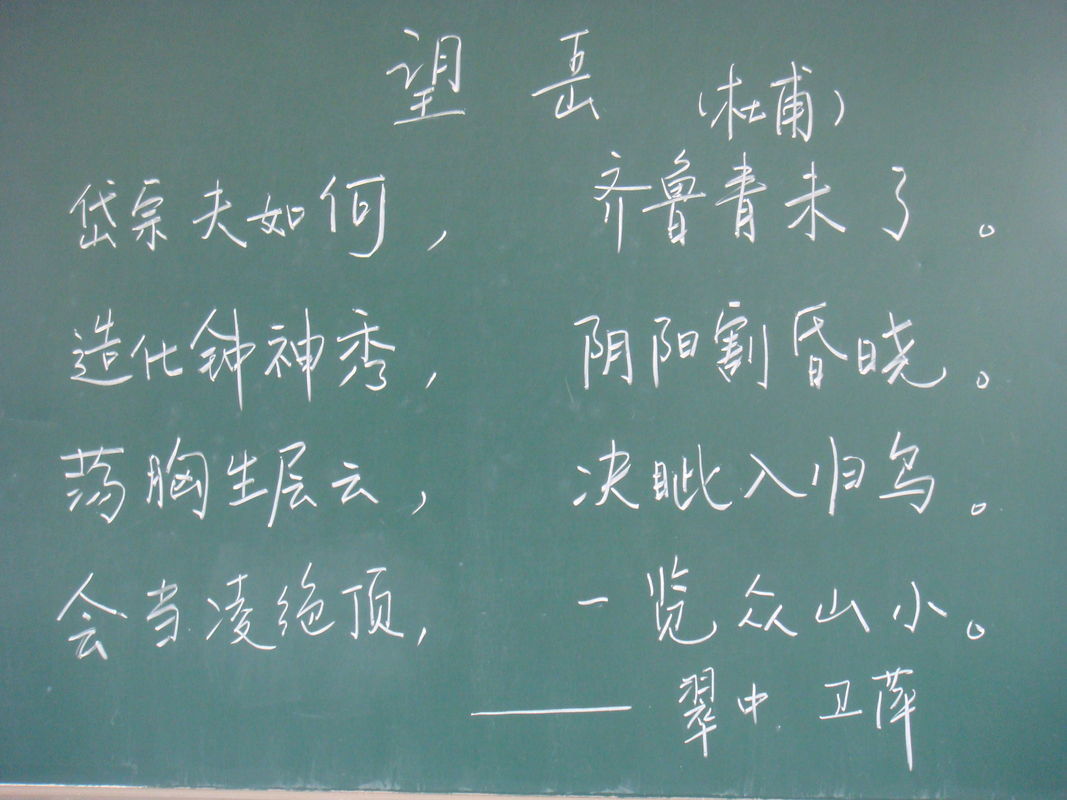 望岳（杜甫）
岱宗夫如何，齐鲁青未了。
造化钟神秀，阴阳割昏晓。
荡胸生层云，决眦入归鸟。
会当凌绝顶，一览众山小。
——翠中 卫萍